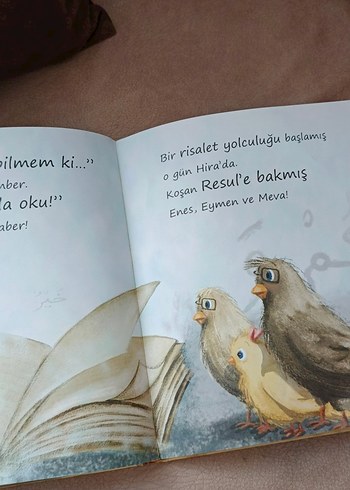 bilmem ki...”
mber.
la oku!”
aber!
Bir risalet yolculuğu başlamış
o gün Hira’da.
Koşan Resul’e bakmış
Enes, Eymen ve Meva!